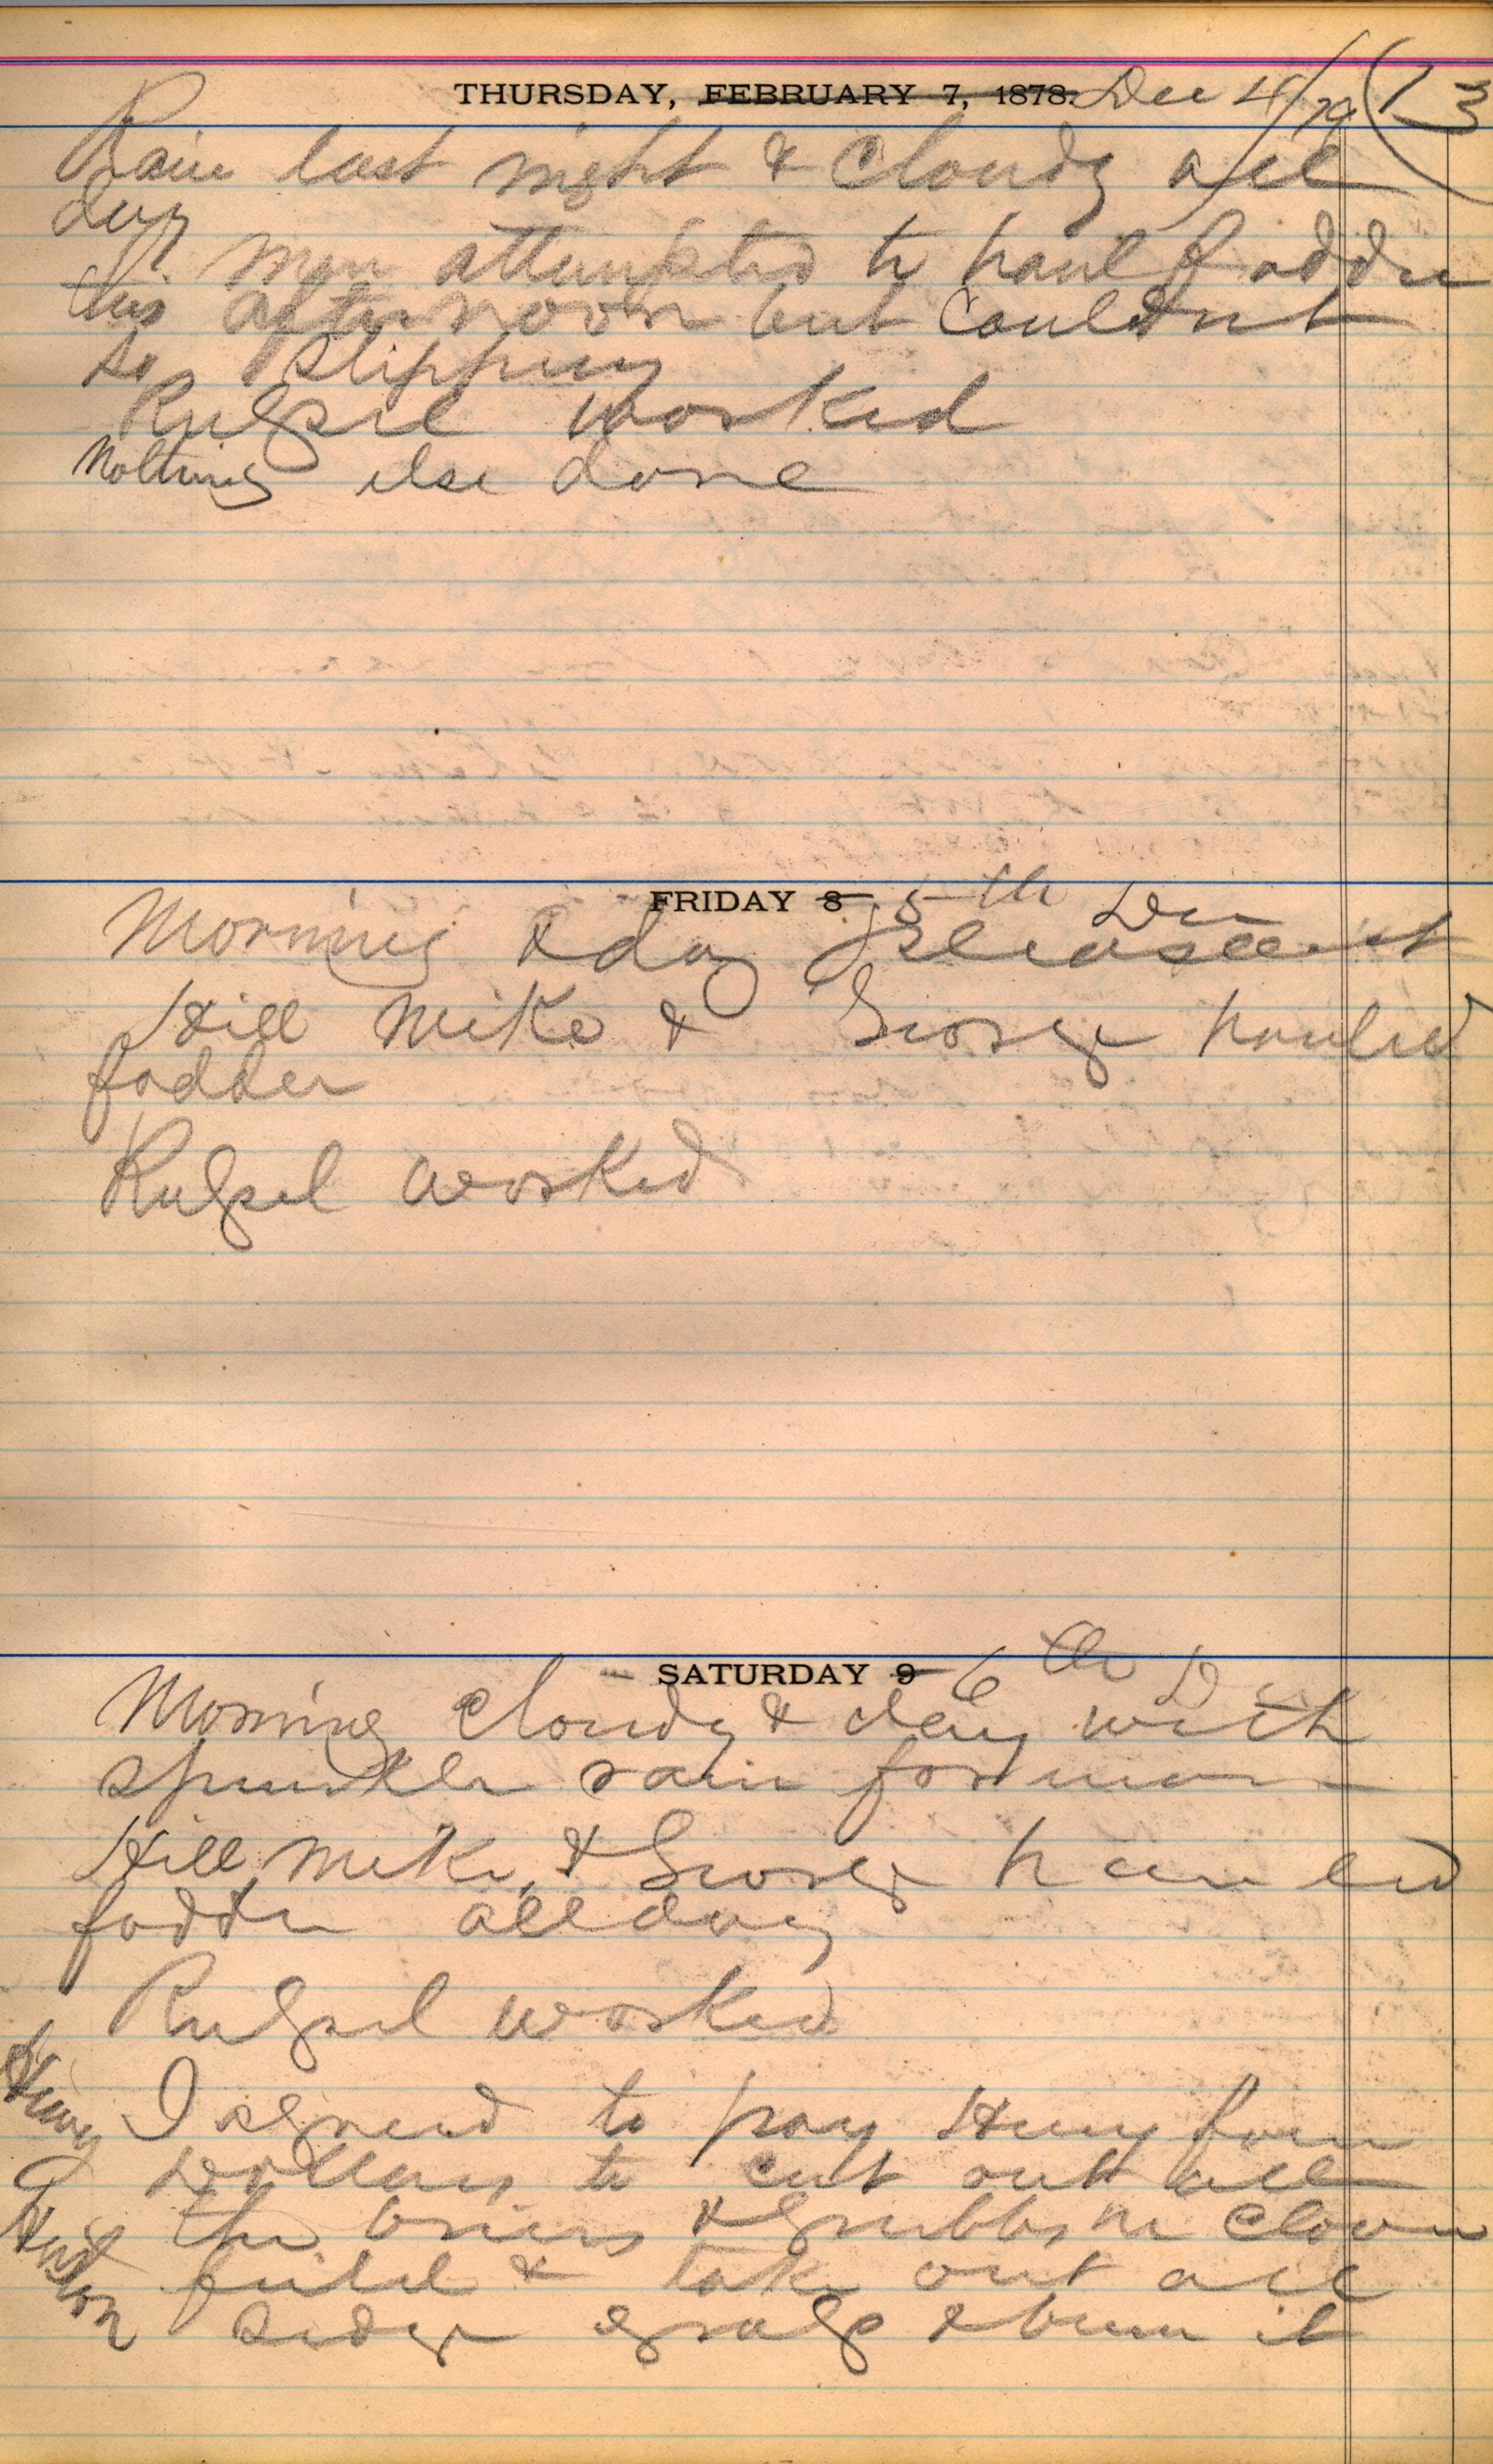 THURSDAY, FEBRUARY 7, 1878. Dec 4/79 (13
Rain last night & Cloudy all
day
Men attempted to haul fodder
this afternoon but Couldnt
so slippery
worked
Nothing else done
FRIDAY 8 5th Dec
Morning & day pleasant
Hill Mike & George hauled
fodder
worked
SATURDAY 9 6th Dec
Morning Cloudy & day with
sprinkle rain
Hill, Mike, & George hauled
fodder all day
worked
I agreed to pay Henry four
Dollars to cut out all
the briers & Grubbs in Clover
field & take out all
sedge grass & burn it
Henry